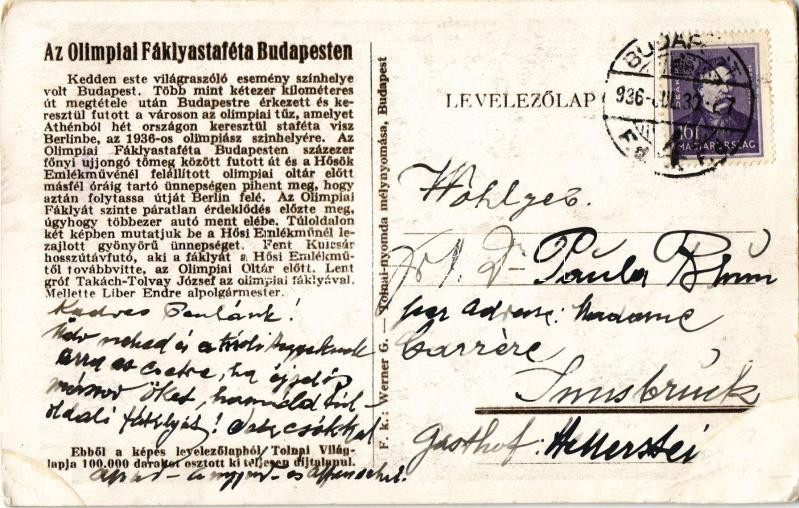 Az Olimpiai Fáklyastaféta Budapesten
Kedden este világraszóló esemény színhelye
volt Budapest. Több mint kétezer kilométeres
út megtétele után Budapestre érkezett és ke-
resztül futott a városon az olimpiai tűz, amelyet
Athénból hét országon keresztül staféta visz
Berlinbe, az 1936-os olimpiász színhelyére. Az
Olimpiai Fáklyastaféta Budapesten százezer
főnyi ujjongó tömeg között futott át és a Hősök
Emlékművénél felállított olimpiai oltár előtt
másfél óráig tartó ünnepségen pihent meg, hogy
aztán folytassa útját Berlin felé. Az Olimpiai
Fáklyát szinte páratlan érdeklődés előzte meg,
úgyhogy többezer autó ment elébe. Túloldalon
két képben mutatjuk be a Hősi Emlékműnél le-
zajlott gyönyörű ünnepséget. Fent Kulcsár
hosszútávfutó, aki a fáklyát a Hősi Emlékmű-
től továbbvitte, az Olimpiai Oltár előtt. Lent
gróf Takách-Tolvay József az olimpiai fáklyával.
Mellette Liber Endre alpolgármester.
Kedves Paulánk!
arra az esetre, ha
őket,
oldali fáklyát!
Ebből a képes levelezőlapból Tolnai Világ-
lapja 100.000 darabot osztott ki teljesen díjtalanul.
F. k.: Werner G. — Tolnai-nyomda mélynyomása, Budapest
LEVELEZŐLAP
BUDAPEST
936 JUL 30
10f
MAGYARORSZÁG
Wohlgeb.
Dr Paula Blum
per Adresse: Madame
Carrère
Innsbruck
Gasthof: